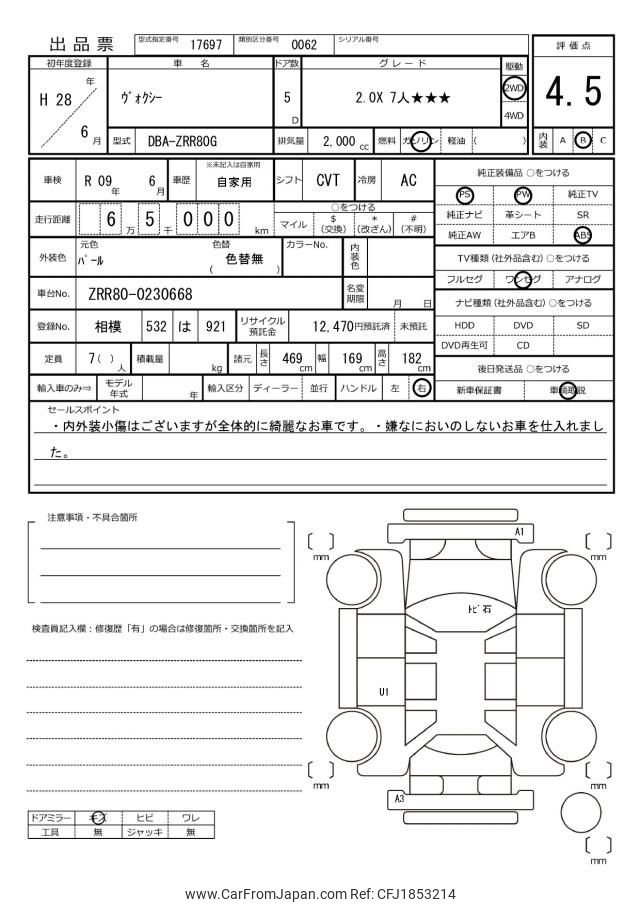 出品票 型式指定番号 17697 類別区分番号 0062 シリアル番号
評価点
4.5
内装 A B C
初年度登録 車名 ドア数 グレード 駆動
H 28 年 6 月 ヴォクシー 5 D 2.0X 7人★★★ 2WD 4WD
型式 DBA-ZRR80G 排気量 2,000 cc 燃料 ガソリン 軽油 ( )
車検 R 09 年 6 月 車歴 ※未記入は自家用 自家用 シフト CVT 冷房 AC
走行距離 6 5 万 千 0 0 0 km
○をつける
マイル $ (交換) * (改ざん) # (不明)
外装色 元色 パール 色替 ( 色替無 ) カラーNo. 内装色
車台No. ZRR80-0230668 名変期限 月 日
登録No. 相模 532 は 921 リサイクル預託金 12,470円預託済 未預託
定員 7 ( ) 人 積載量 kg 諸元 長さ 469 cm 幅 169 cm 高さ 182 cm
輸入車のみ⇒ モデル年式 年 輸入区分 ディーラー 並行 ハンドル 左 右
純正装備品 ○をつける
PS PW 純正TV
純正ナビ 革シート SR
純正AW エアB ABS
TV種類 (社外品含む) ○をつける
フルセグ ワンセグ アナログ
ナビ種類 (社外品含む) ○をつける
HDD DVD SD
DVD再生可 CD
後日発送品 ○をつける
新車保証書 車輌取説
セールスポイント
・内外装小傷はございますが全体的に綺麗なお車です。・嫌なにおいのしないお車を仕入れまし
た。
注意事項・不具合箇所
検査員記入欄：修復歴「有」の場合は修復箇所・交換箇所を記入
ドアミラー キズ ヒビ ワレ
工具 無 ジャッキ 無
A1
mm
mm
トビ石
U1
mm
mm
A3
mm
www.CarFromJapan.com Ref: CFJ1853214